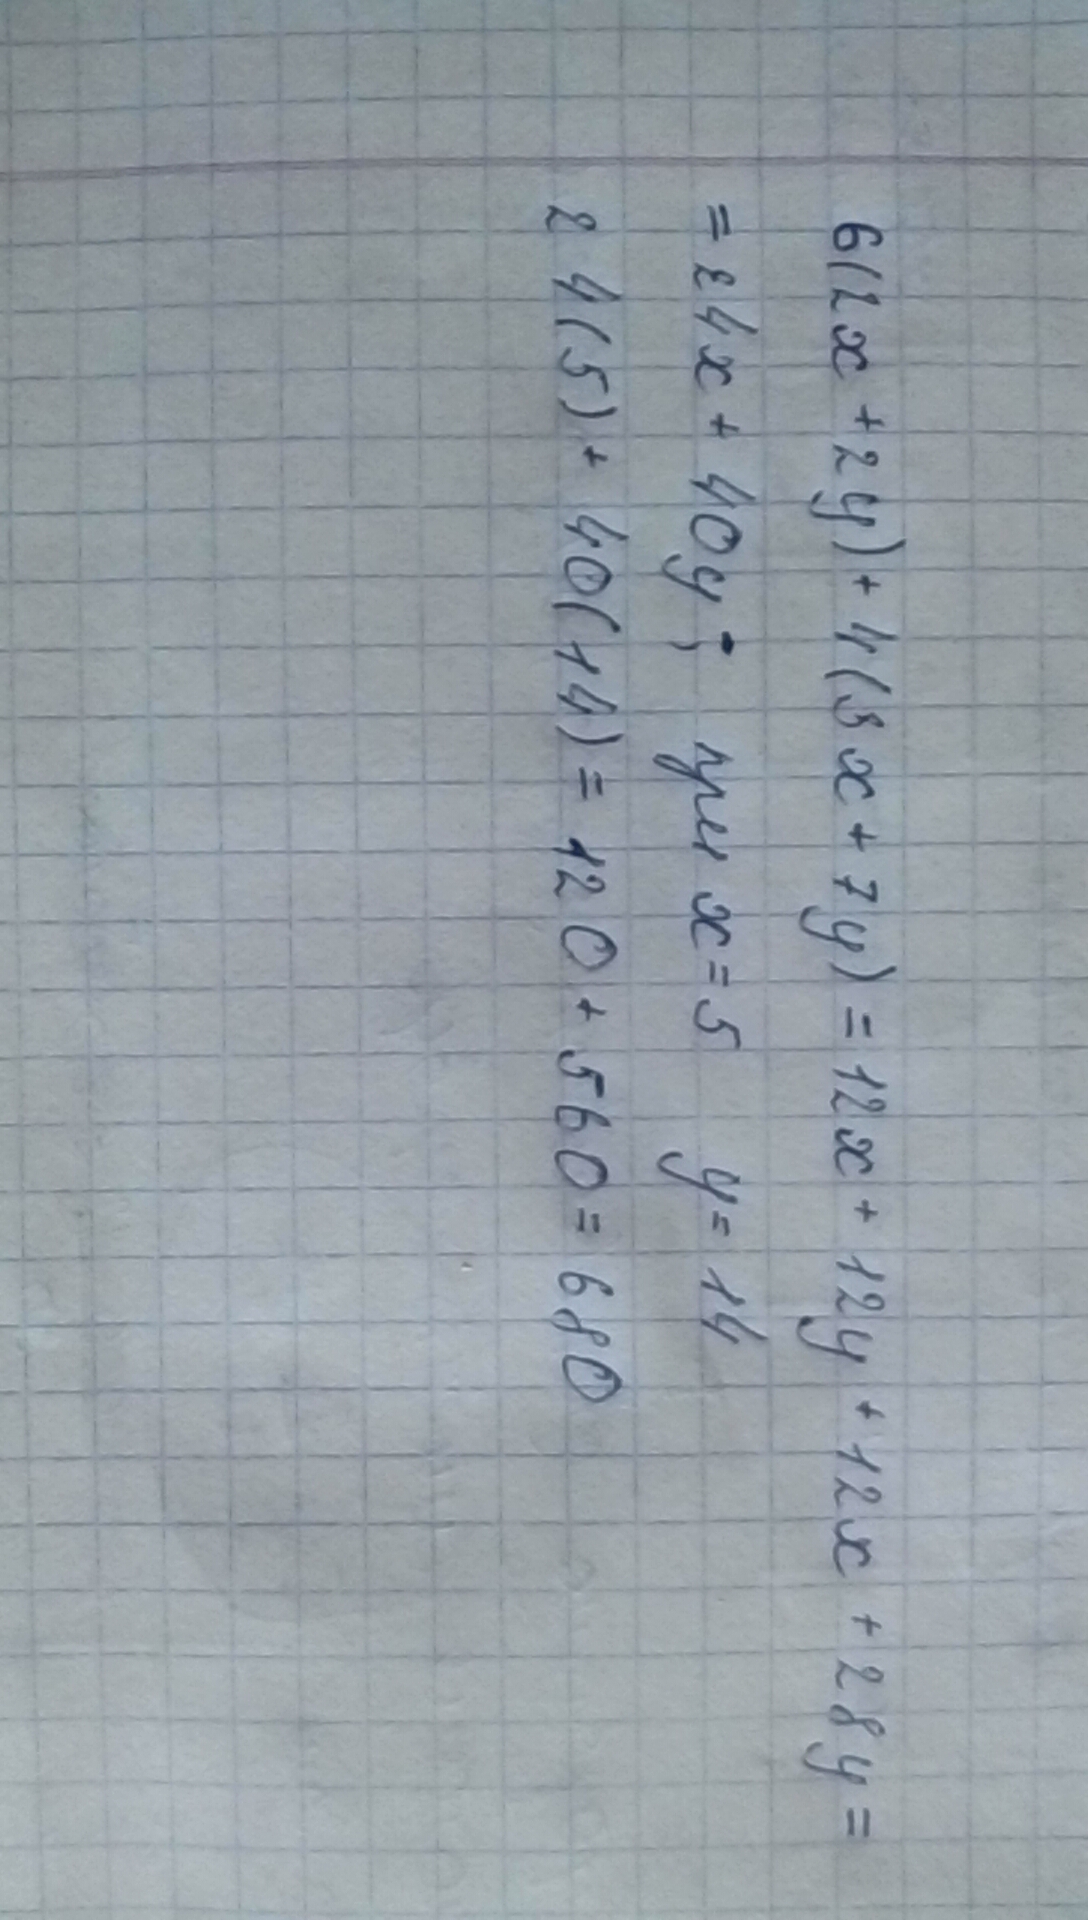 6(2x+2y)+4(3x+7y)=12x+12y+12x+28y=
=24x+40y; при x=5 y=14
24(5)+40(14)=120+560=680